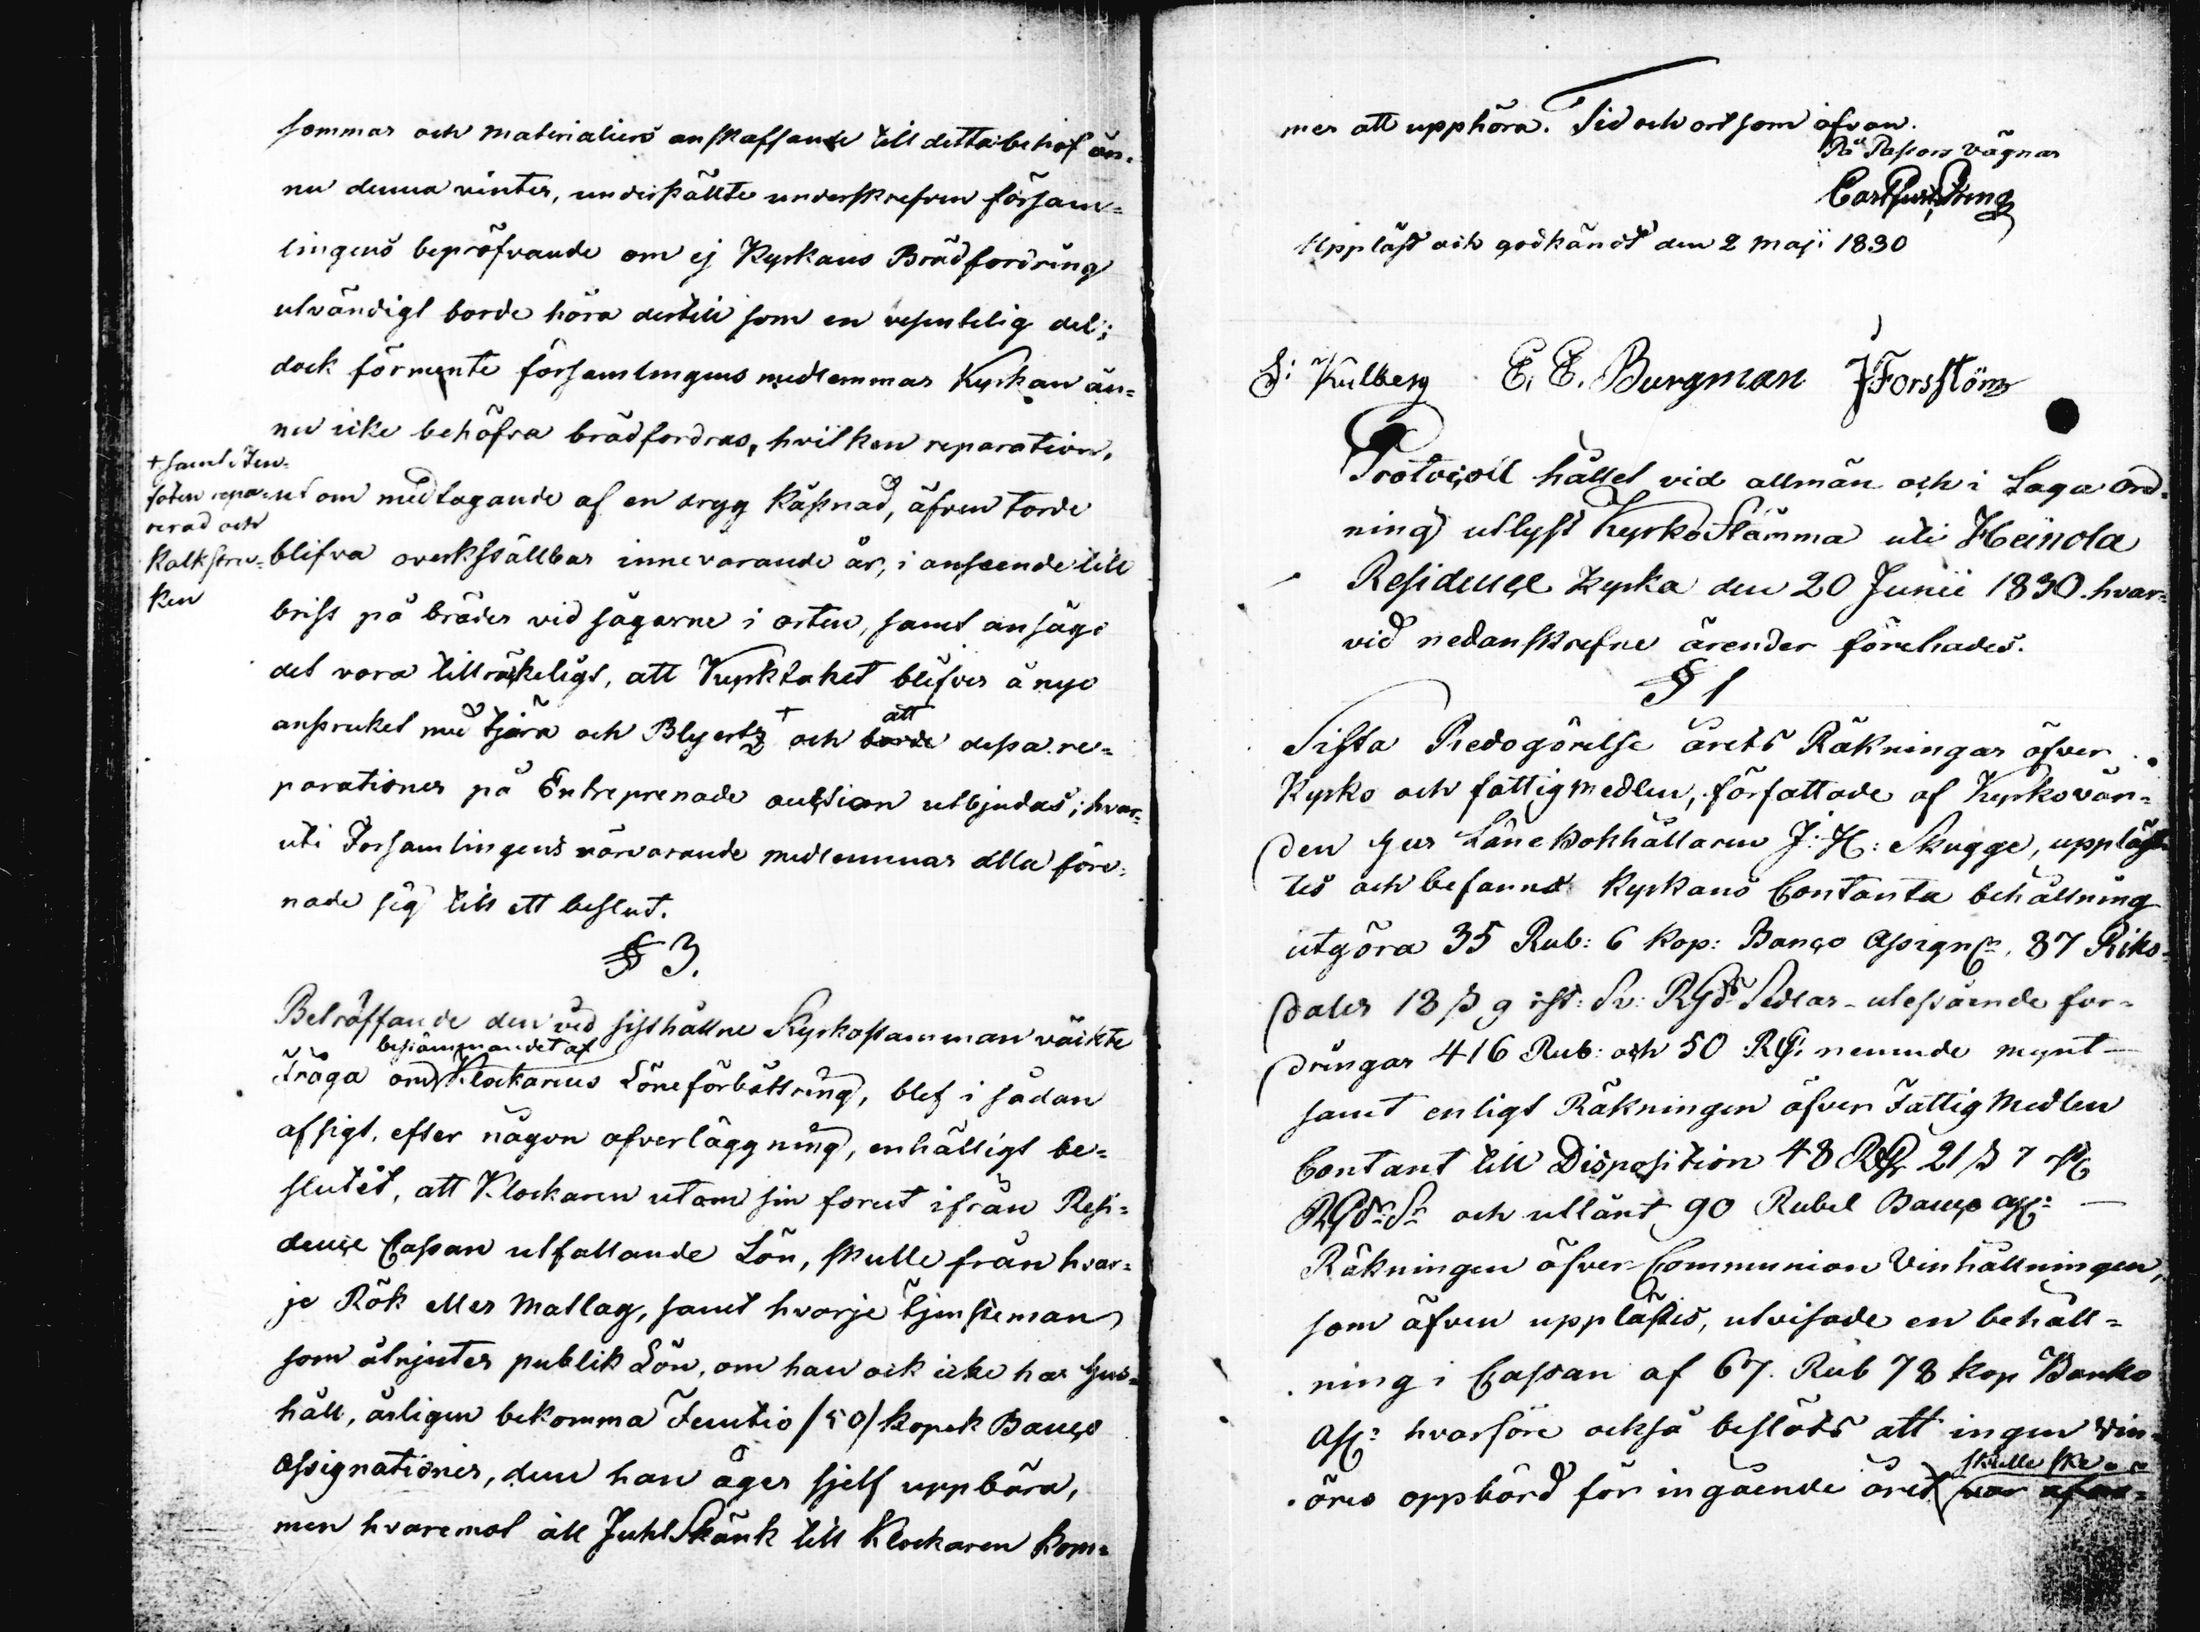 sommar och materialiers anskaffande till detta behof än-
nu denna vinter, underställte underskrefven försam-
lingens bepröfvande om ej Kyrkans Brädfordring
utvändigt borde höra dertill som en vesentelig del;
dock förmente församlingens medlemmar Kyrkan än-
nu icke behöfva brädfordras, hvilken reparation,
utom medtagande af en dryg kåstnad, äfven torde
blifva overkställbar innevarande år, i anseende till
brist på bräder vid sågarne i orten, samt ansågs
det vara tillräkeligt, att Kyrktaket blifver å nyo
anstruket med tjära och Blyertz + och borde att dessa re-
parationer på Entreprenade auction utbjudas; hvar-
uti Församlingens närvarande medlemmar alla före-
nade sig till ett beslut.
+ samt Sten-
foten repa-
rerad och
Kalkstru-
ken
§ 3.
Beträffande den vid sisthållne Kyrkostämman väckte
fråga om bestämmandet af Klockarens Löneförbättring, blef i sådan
afsigt, efter någon öfverläggning, enhälligt be-
slutet, att Klockaren utom sin förut ifrån Resi-
dence Cassan utfallande Lön, skulle från hvar-
je Rök eller Matlag, samt hvarje tjensteman
som åtnjuter publik Lön, om han ock icke har hus-
håll, årligen bekomma Femtio /50/ kopek Banco
Assignationer, dem han äger sjelf uppbära,
men hvaremot all Juhl Skänk till Klockaren kom-
mer att upphöra. Tid och ort som ofvan.
På Pastors vägnar
Carl Gust.
Uppläst och godkändt den 2 Maji 1830
S: Kulberg E. E. Burgman J Forsström
Protocoll hållet vid allmän och i Laga ord-
ning utlyst Kyrko Stämma uti Heinola
Residence Kyrka den 20 Junii 1830. hvar-
vid nedanskrefne ärender förehades.
§ 1
Sista Redogörelse årets Räkningar öfver
Kyrko och fattigmedlen, författade af Kyrkovär-
den Herr Läne Bokhållaren J: H: Skugge, uppläs-
tes och befanns kyrkans Contanta behållning
utgöra 35 Rub: 6 kop: Banco Assign:, 87 Riks-
daler 18 ß 9 rst: Sv: RGds Sedlar – utestående for-
dringar 416 Rub: och 50 RG: nemnde mynt –
samt enligt Räkningen öfver Fattig Medlen
Contant till Disposition 48 RD 21 ß 7 rst
RGds Sr och utlånt 90 Rubel Banco Ass: –
Räkningen öfver Communion Vinhållningen,
som äfven upplästes, utvisade en behåll-
ning i Cassan af 67. Rub 78 kop Banko
Ass: hvarföre också beslöts att ingen vin-
öres oppbörd för ingående året skulle ske